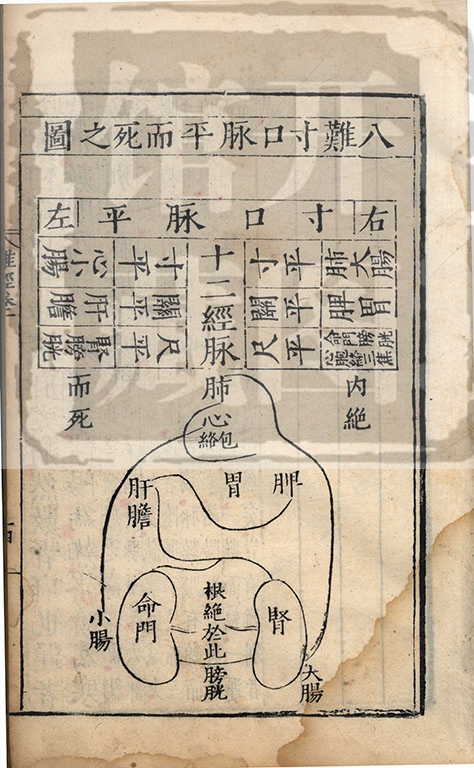 八難寸口脉平而死之圖
右 寸口脉平 左
大腸 肺 平 寸 十二經脉 寸 平 心 小腸
胃 脾 平 關 關 平 肝 膽
膀胱 命門 三焦 心胞絡 平 尺 尺 平 腎 膀胱
内絶
而死
肺
心
包絡
脾
胃
肝
膽
腎
命門
根絶於此
膀胱
大腸
小腸